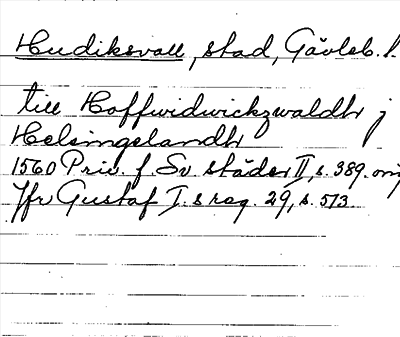 Hudiksvall, stad, Gävleb. l.
till Hoffwidwickzwaldh j
Helsingelandh
1560 Priv. f. Sv. städer II, s. 389. orig
Jfr Gustaf I.s reg. 29, s. 573.